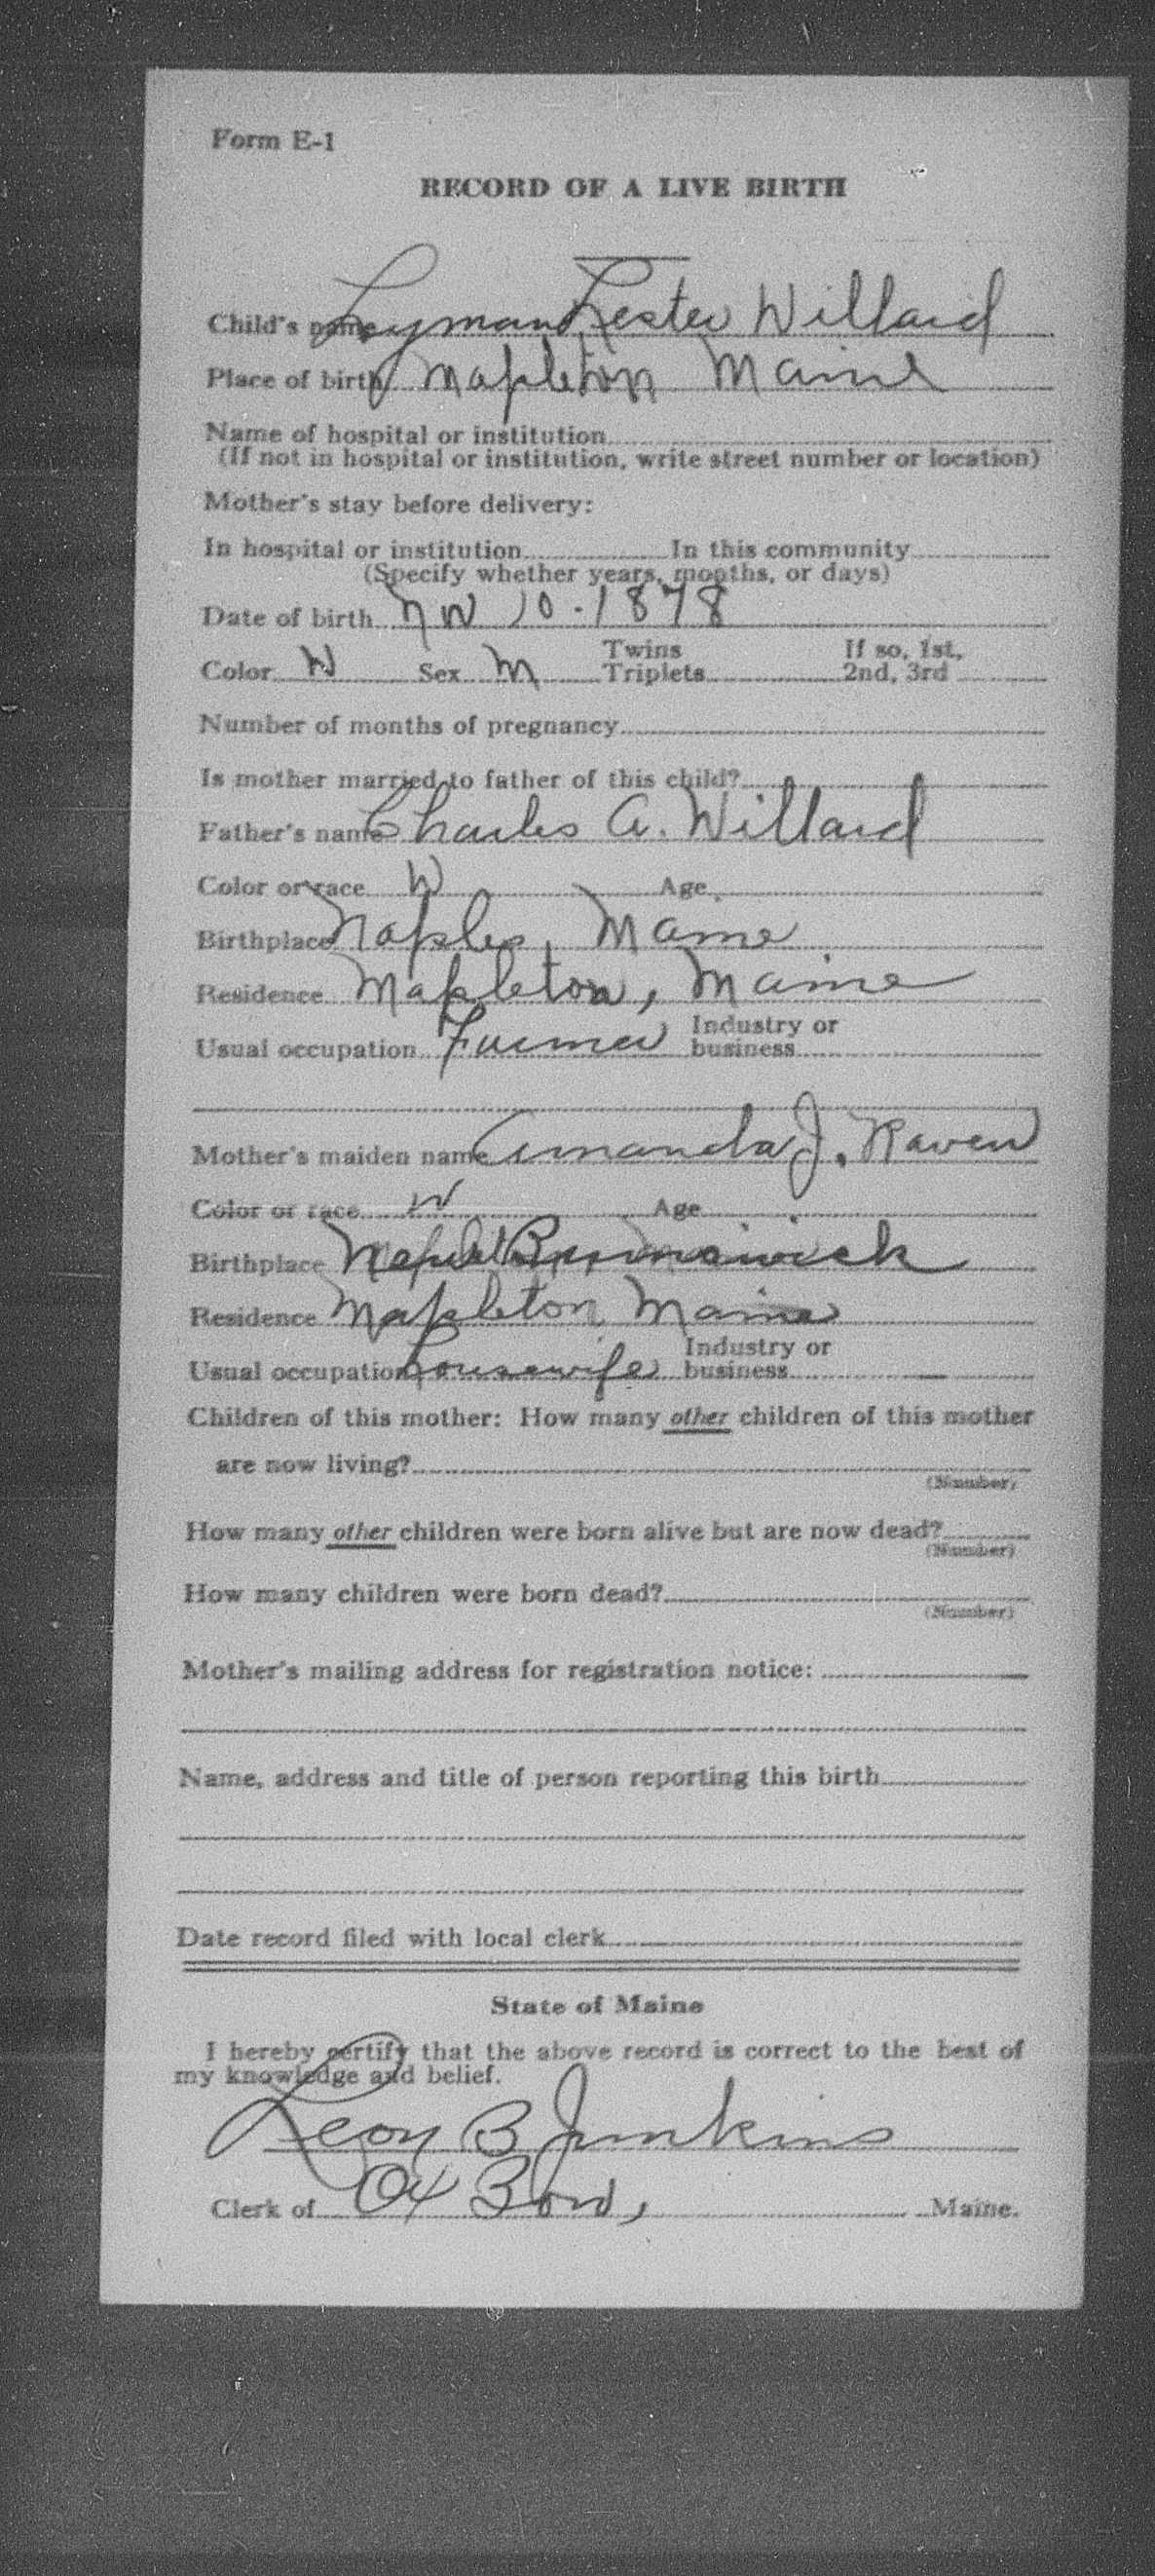 Form E-1
RECORD OF A LIVE BIRTH
Child's name Lyman Lester Willard
Place of birth Mapleton Maine
Name of hospital or institution
(If not in hospital or institution, write street number or location)
Mother's stay before delivery:
In hospital or institution In this community
(Specify whether years, months, or days)
Date of birth Nov 10 - 1878
Color W Sex M Twins Triplets If so, 1st, 2nd, 3rd
Number of months of pregnancy
Is mother married to father of this child?
Father's name Charles A. Willard
Color or race W Age
Birthplace Naples, Maine
Residence Mapleton, Maine
Usual occupation Farmer Industry or business
Mother's maiden name Amanda J. Raven
Color or race W Age
Birthplace Brunswick
Residence Mapleton Maine
Usual occupation housewife Industry or business
Children of this mother: How many other children of this mother
are now living?
(Number)
How many other children were born alive but are now dead?
(Number)
How many children were born dead?
(Number)
Mother's mailing address for registration notice:
Name, address and title of person reporting this birth
Date record filed with local clerk
State of Maine
I hereby certify that the above record is correct to the best of
my knowledge and belief.
Leon B Junkins
Clerk of Ox Bow, Maine.